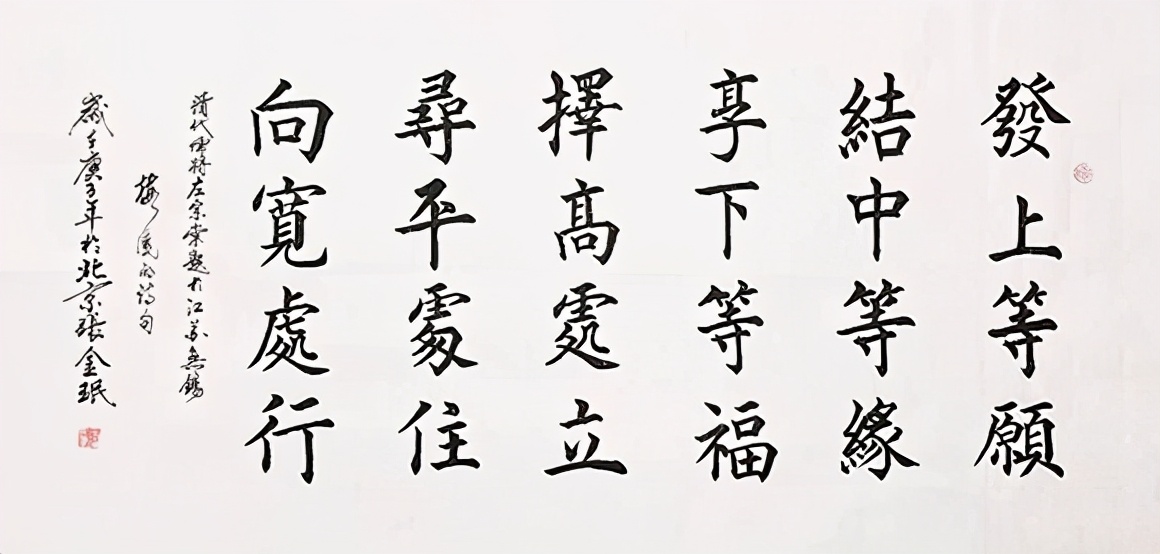 發上等願
結中等緣
享下等福
擇高處立
尋平處住
向寬處行
清代儒将左宗棠题於江苏無錫
梅園的詩句
歲在庚子年於北京張金珉